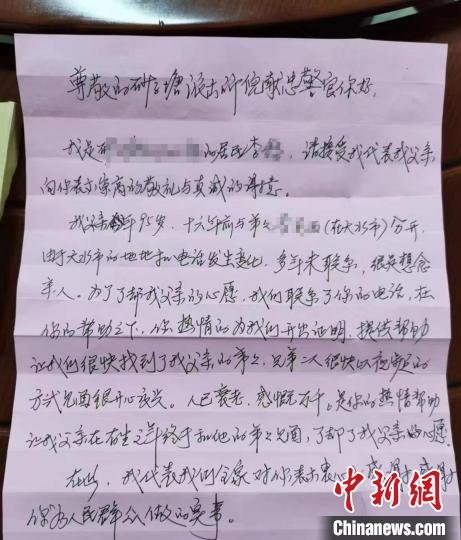 尊敬的砑石塘派出所倪献忠警官你好,
我是在 的居民李 , 请接受我代表我父亲
向你表示崇高的敬礼与真诚的谢意。
我父亲今年95岁, 十六年前与弟弟 (在天水市) 分开,
由于天水市的地址和电话发生变化, 多年未联系, 很是想念
亲人。为了了却我父亲的心愿, 我们联系了你的电话, 在
你的帮助之下, 你热情的为我们开出证明, 提供帮助
让我们很快找到了我父亲的弟弟, 兄弟二人很快以视频的
方式见面很开心高兴。人已衰老, 感慨万千。是你的热情帮助
让我父亲在有生之年终于和他的弟弟见面, 了却了我父亲的心愿
在此, 我代表我们全家对你表示衷心 感谢! 感谢
你为人民群众做的实事。
中新网
Chinanews.com